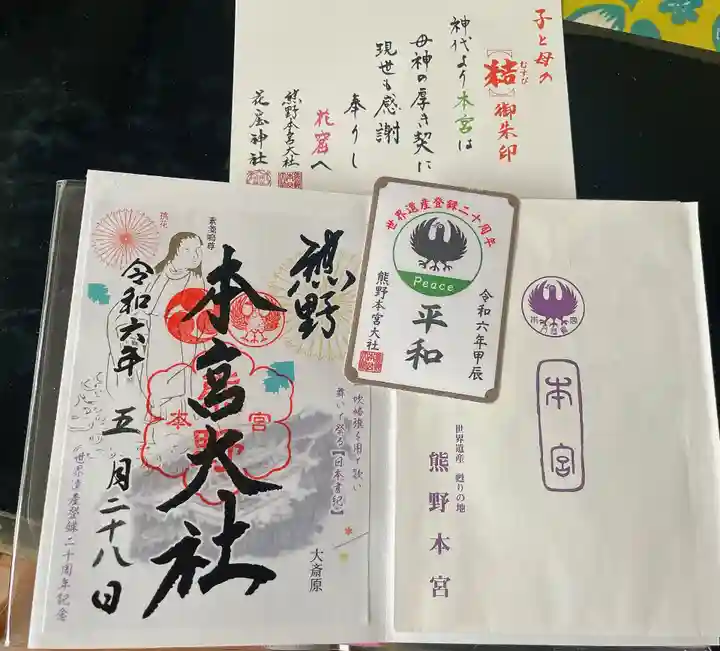 子と母の
【結】御朱印
むすび
神代より本宮は
母神の厚き契に
現世も感謝
奉りし
花窟へ
熊野本宮大社
花窟神社
世界遺産登録二十周年
Peace
平和
令和六年甲辰
熊野本宮大社
熊野
本宮大社
令和六年
五月二十八日
桃花
素戔嗚尊
本
宮
吹幡旗を用て歌い
舞いて祭る【日本書紀】
大斎原
世界遺産登録二十周年記念
本宮
世界遺産 甦りの地
熊野本宮